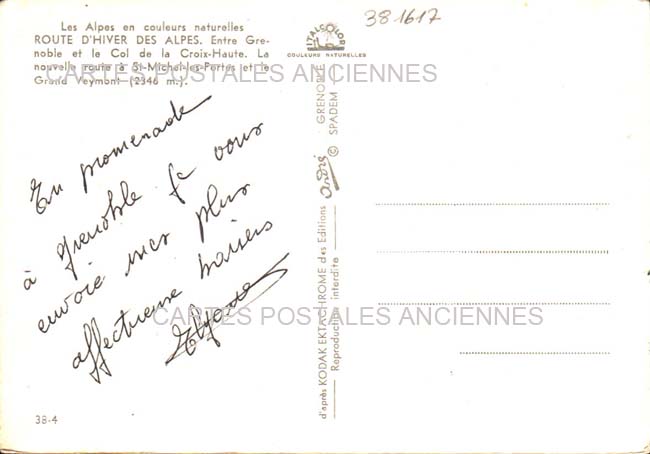 Les Alpes en couleurs naturelles
ROUTE D'HIVER DES ALPES. Entre Gre-
noble et le Col de la Croix-Haute. La
nouvelle route à St-Michel-les-Portes et le
Grand Veymont (2346 m.).
381617
ITALCOLOR
COULEURS NATURELLES
CARTES POSTALES ANCIENNES
En promenade
à grenoble je vous
envoie mes plus
affectueuse baisers
d'après KODAK EKTACHROME des Editions André © GRENOBLE
Reproduction interdite SPADEM
CARTES POSTALES ANCIENNES
38-4